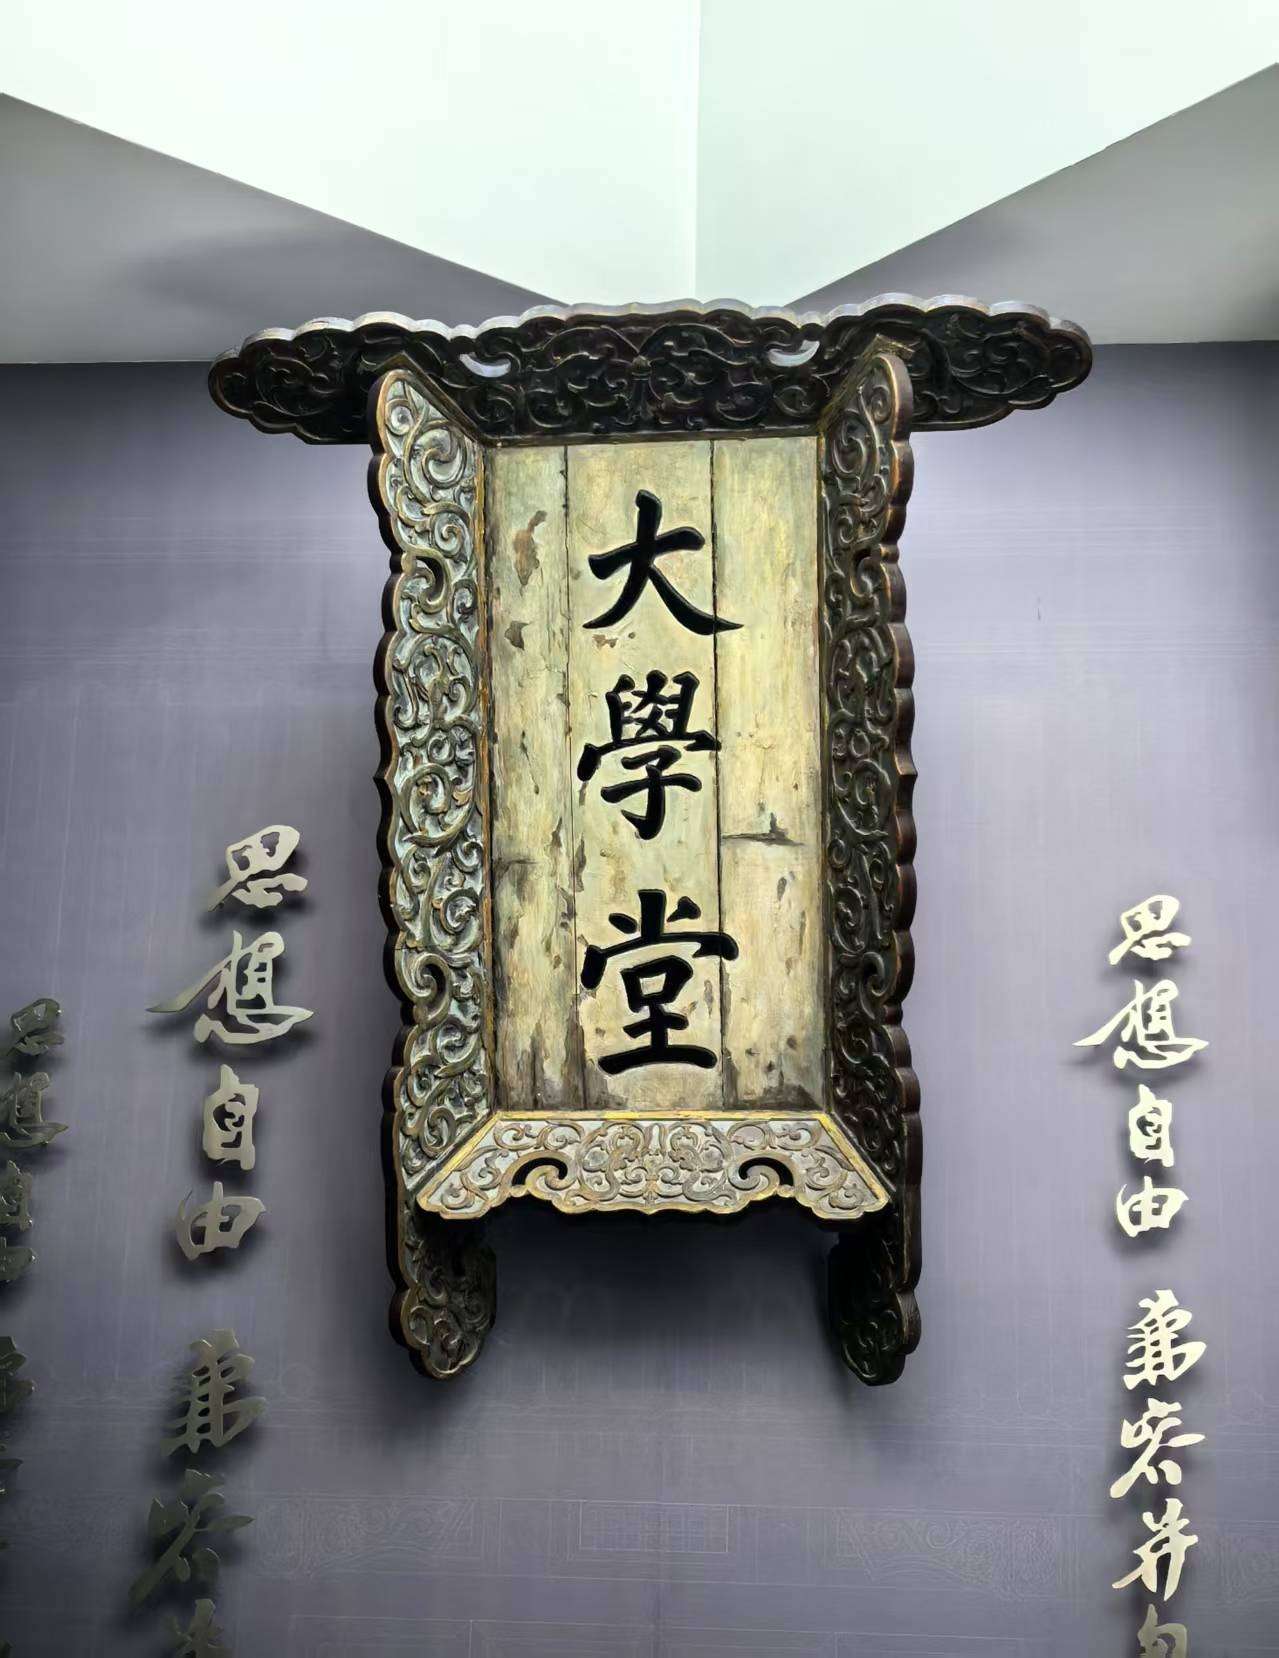 大學堂
思想自由 兼容并包
思想自由 兼容并
思想自由